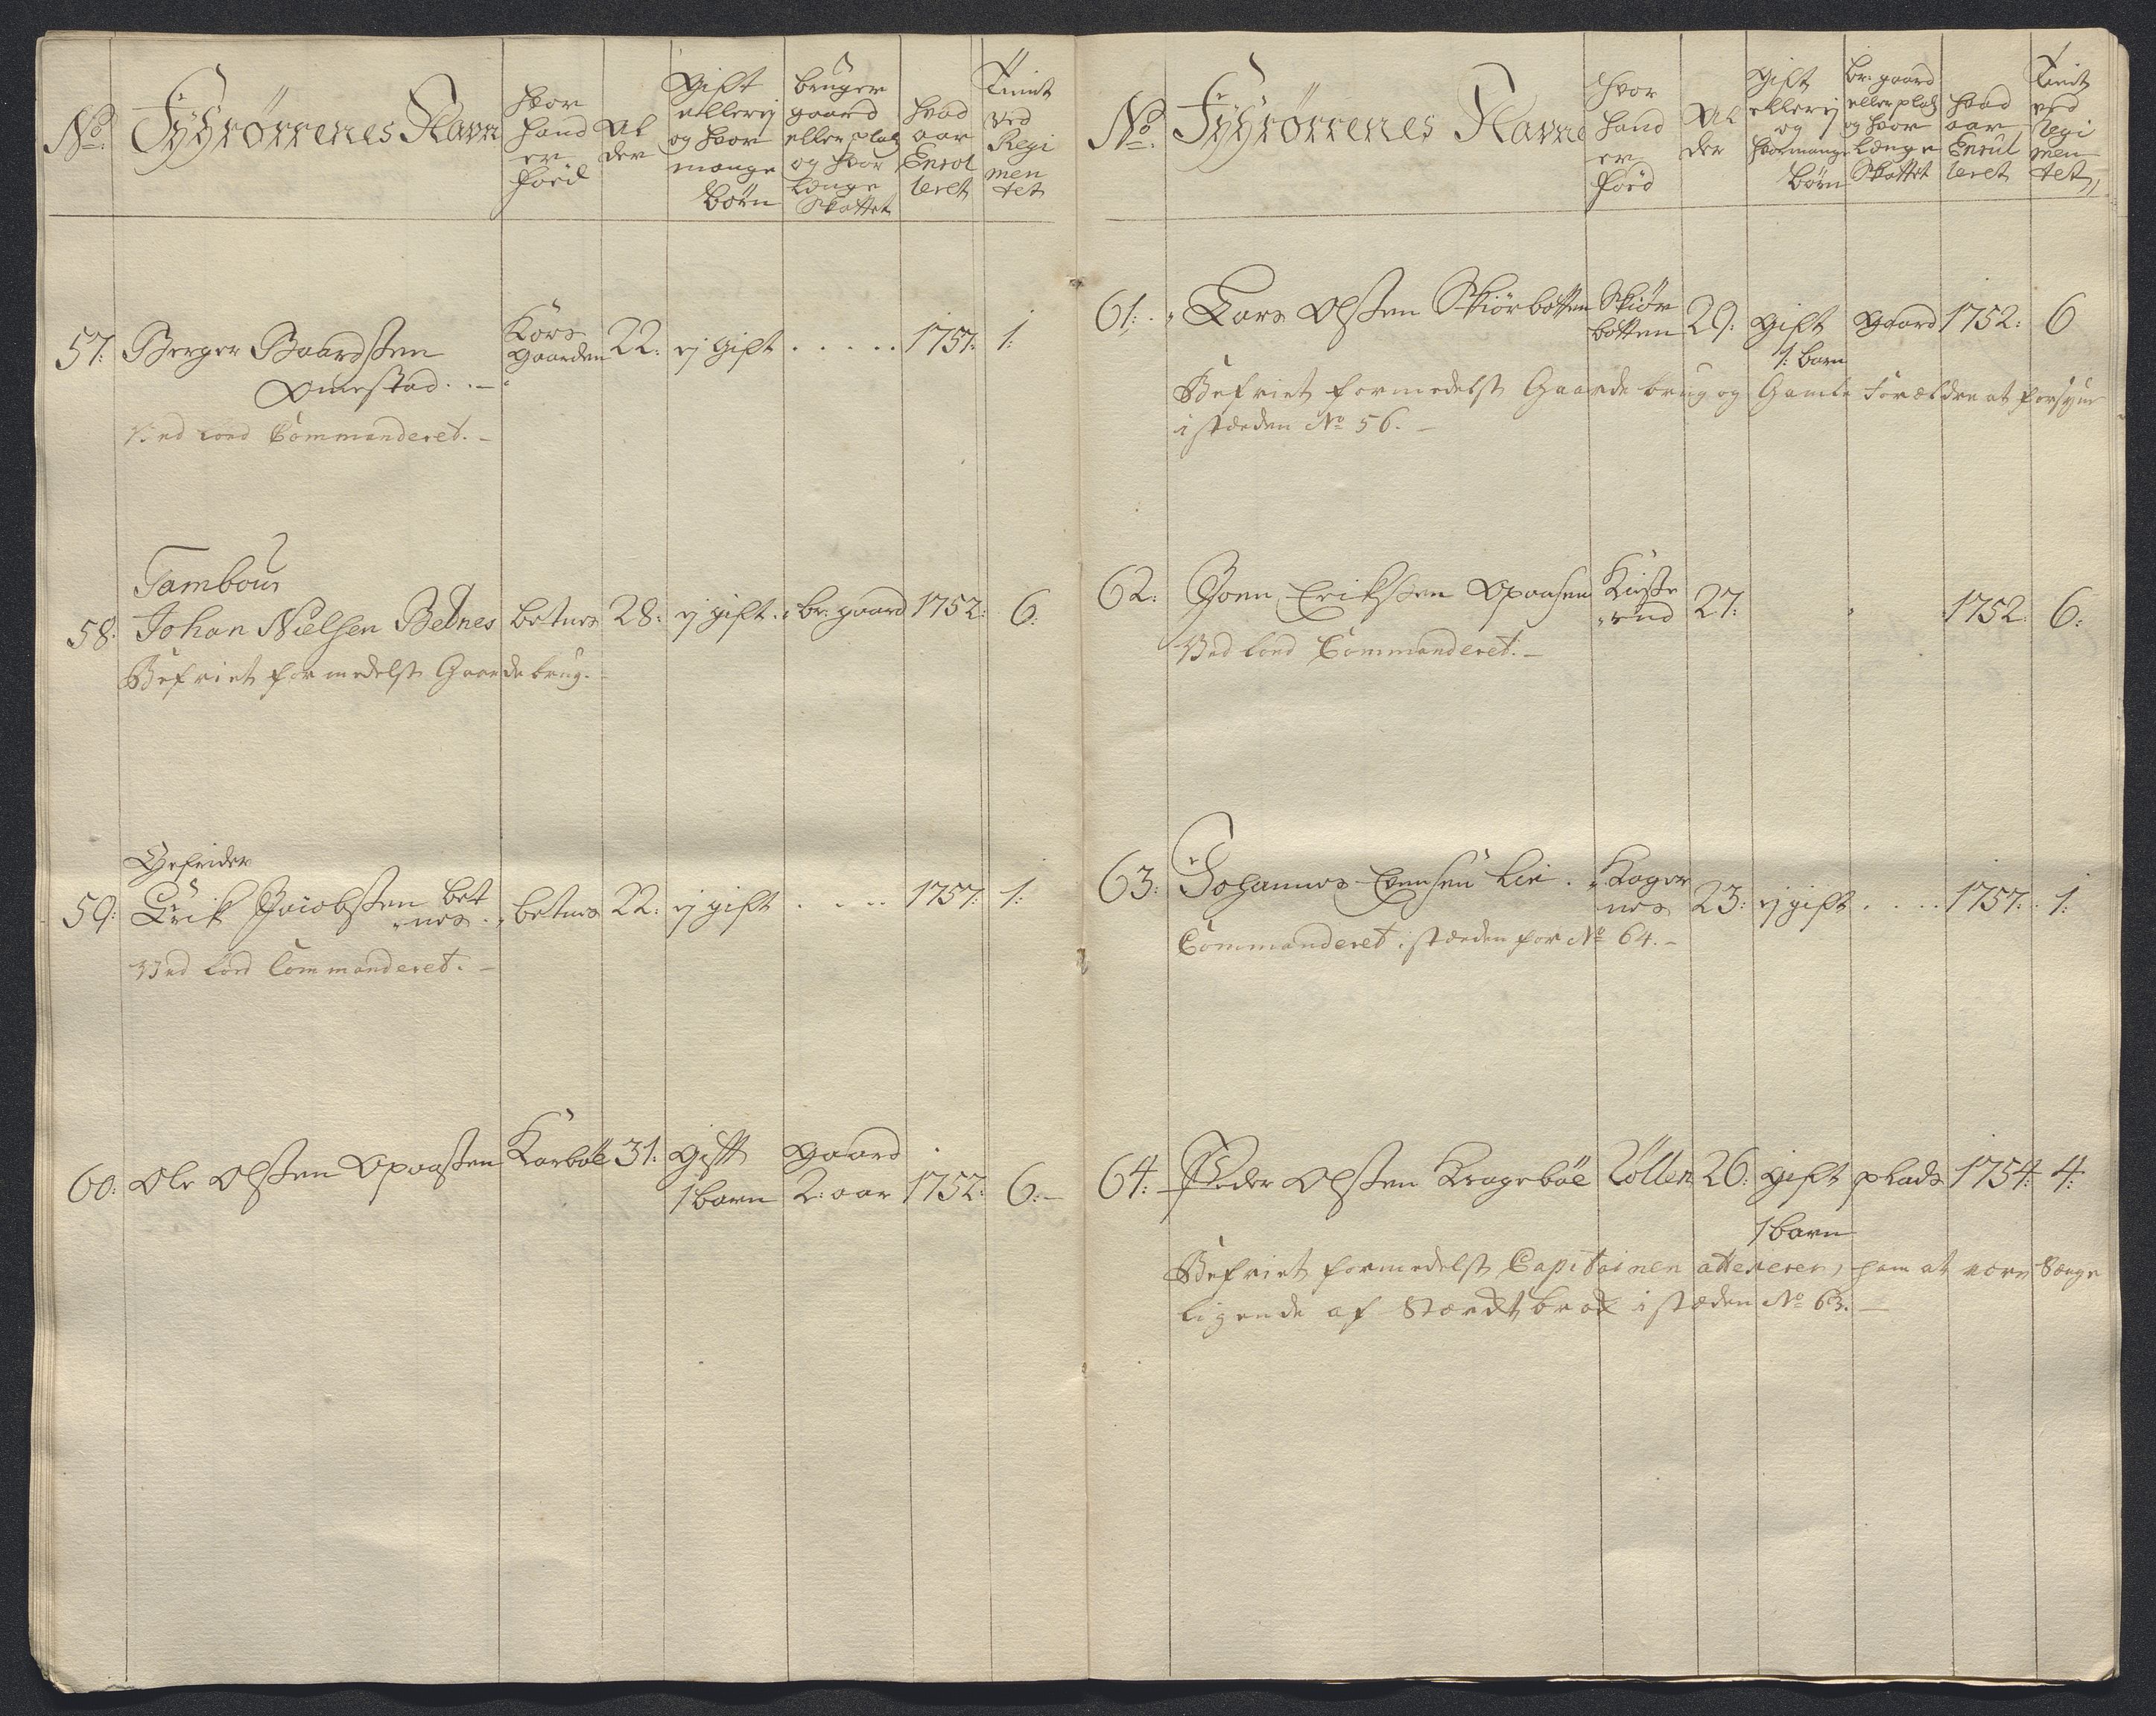 No. Fyhrørrenes Navn
Hvor hand er Föed
Al der
Gift eller ej og hvor mange Börn
bruger gaard eller plads og hvor længe Skattet
Hvad aar Enrol leret
Tient ved Regi men tet
57: Berger Baardsten Kors gaarden 22: ej gift . . . . . 1757: 1:
Omestad . . —
Ved Lond Commanderet. —
Tambour
58: Johan Nielsen Betnes betnes 28: ej gift . br: gaard 1752: 6:
Befriet formedelst Gaarde brug. —
Gefrider
59: Erik Jacobsten bet nes . betnes 22: ej gift . . . . 1757: 1:
Ved Lond Commanderet. —
60: Ole Olsten Opaasten Karböe 31: gift 1 barn gaard 2: aar 1752: 6: —
No. Fyhrørrenes Navne
Hvor hand er föed
Al der
Gift eller ej og hvor mange börn
br: gaard eller plads og hvor længe Skattet
Hvad aar Enrul leret
Tient ved Regi men tet
61: . Lars Olsten Skiörbotten Skiör botten 29: gift 1: barn gaard 1752: 6
Befriet formedelst Gaarde brug og Gamle Forældre at forsyne
i stæden No 56. —
62: Joen Eriksten Opaasen 27: 1752: 6:
Ved Lond Commanderet. —
63: Johannes Lie . Kager nes 23: ej gift . . . . 1757: 1:
Commanderet i stæden for No 64. —
64: Peder Olsten Krageböe Löllen 26: gift plads 1754: 4:
1 barn
Befriet formedelst Capitainen attesterer, ham at være Senge
ligende af i stæden No 63. —